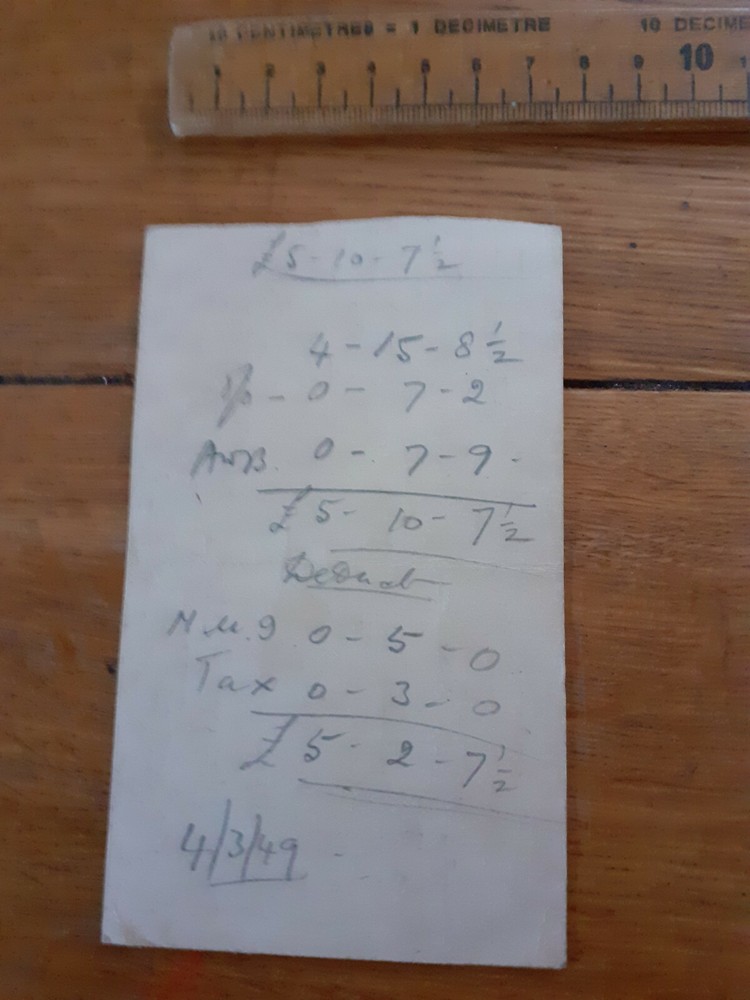 10 CENTIMETRES = 1 DECIMETRE 10 DECIME
1 2 3 4 5 6 7 8 9 10 1
£5-10-7½
4-15-8½
- 0- 7-2
0- 7-9-
£5- 10-7½
Deduct
0-5-0
Tax 0-3-0
£5-2-7½
4/3/49-